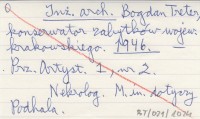 Inż. arch. Bogdan Treter,
konserwator zabytków wojew.
krakowskiego. 1946.
Prz. Artyst. 1, nr 2.
Nekrolog. M. in. dotyczy
Podhala.